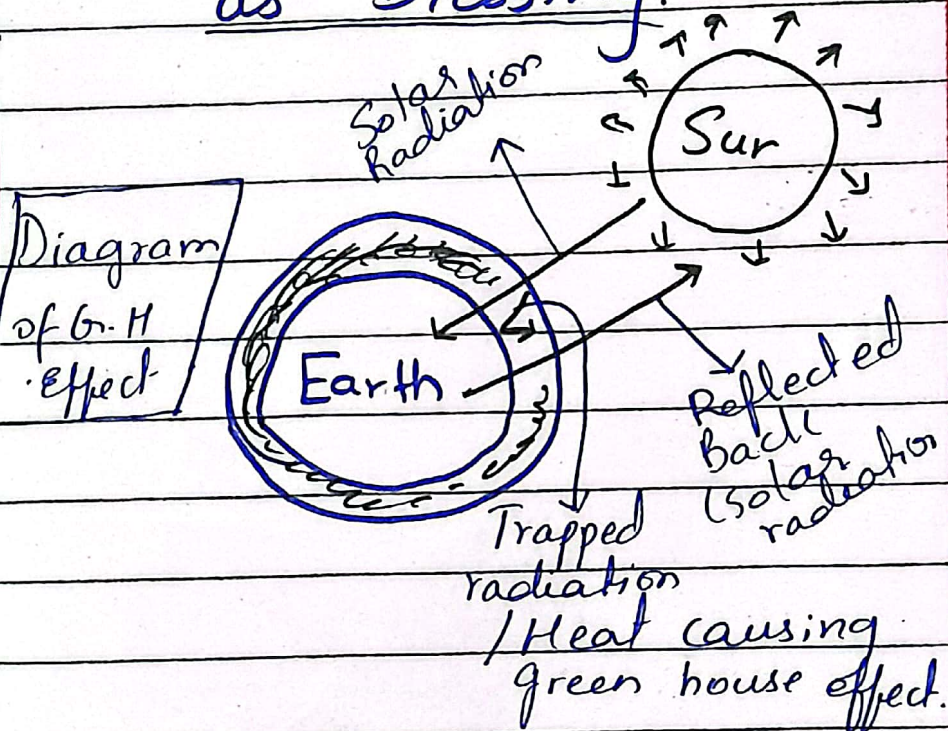 as Blessing.
Solar
Radiation
Sun
Diagram
of G.H
Effect
Earth
Reflected
Back
(solar
radiation
Trapped
radiation
/Heat causing
green house effect.